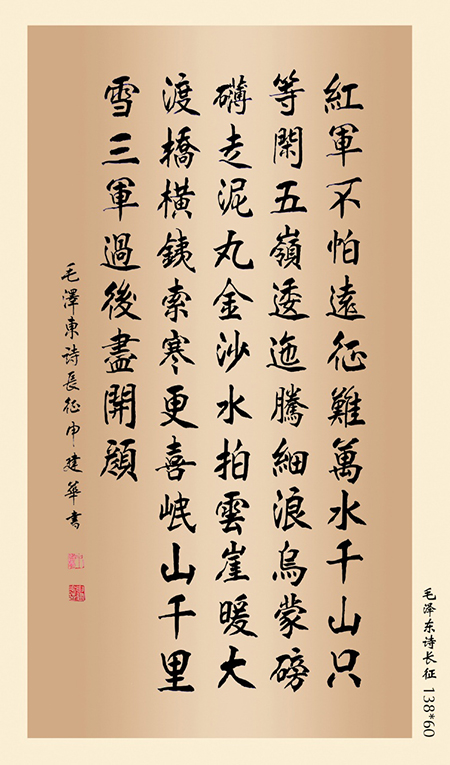 紅軍不怕遠征難萬水千山只
等閑五嶺逶迤騰細浪烏蒙磅
礴走泥丸金沙水拍雲崖暖大
渡橋橫銕索寒更喜岷山千里
雪三軍過後盡開顏
毛澤東诗長征申建華書
毛泽东诗长征 138*60